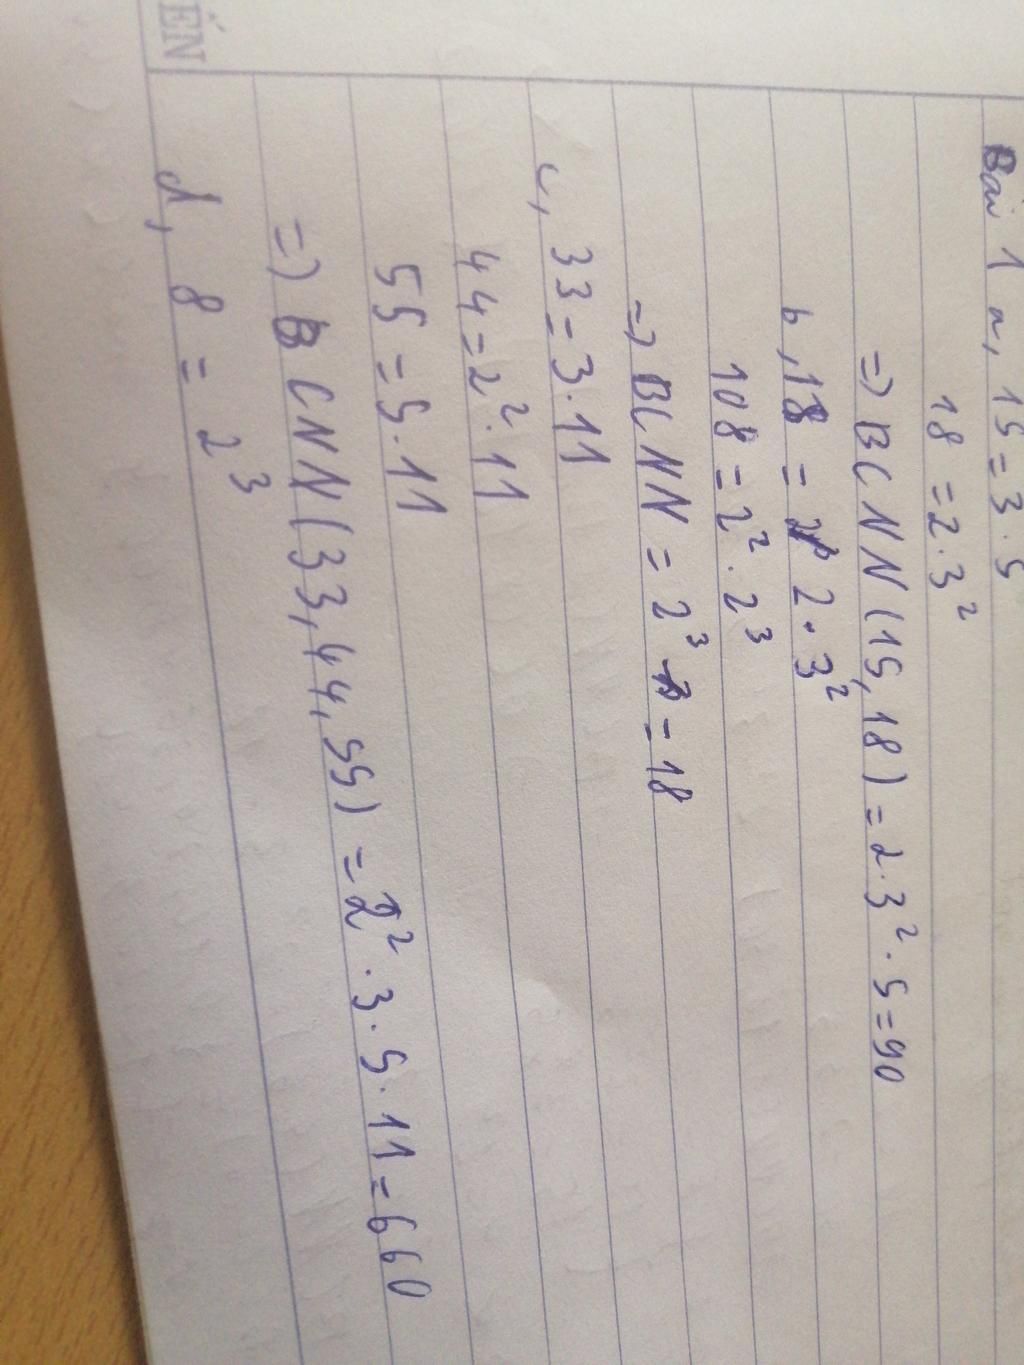 ẾN
Bài 1 a, 15 = 3 . 5
18 = 2 . 3²
=> BCNN (15, 18) = 2 . 3² . 5 = 90
b, 18 = 2 . 3²
108 = 2² . 2³
=> BCNN = 2³ = 18
c, 33 = 3 . 11
44 = 2² . 11
55 = 5 . 11
=> BCNN (33, 44, 55) = 2² . 3 . 5 . 11 = 660
d, 8 = 2³